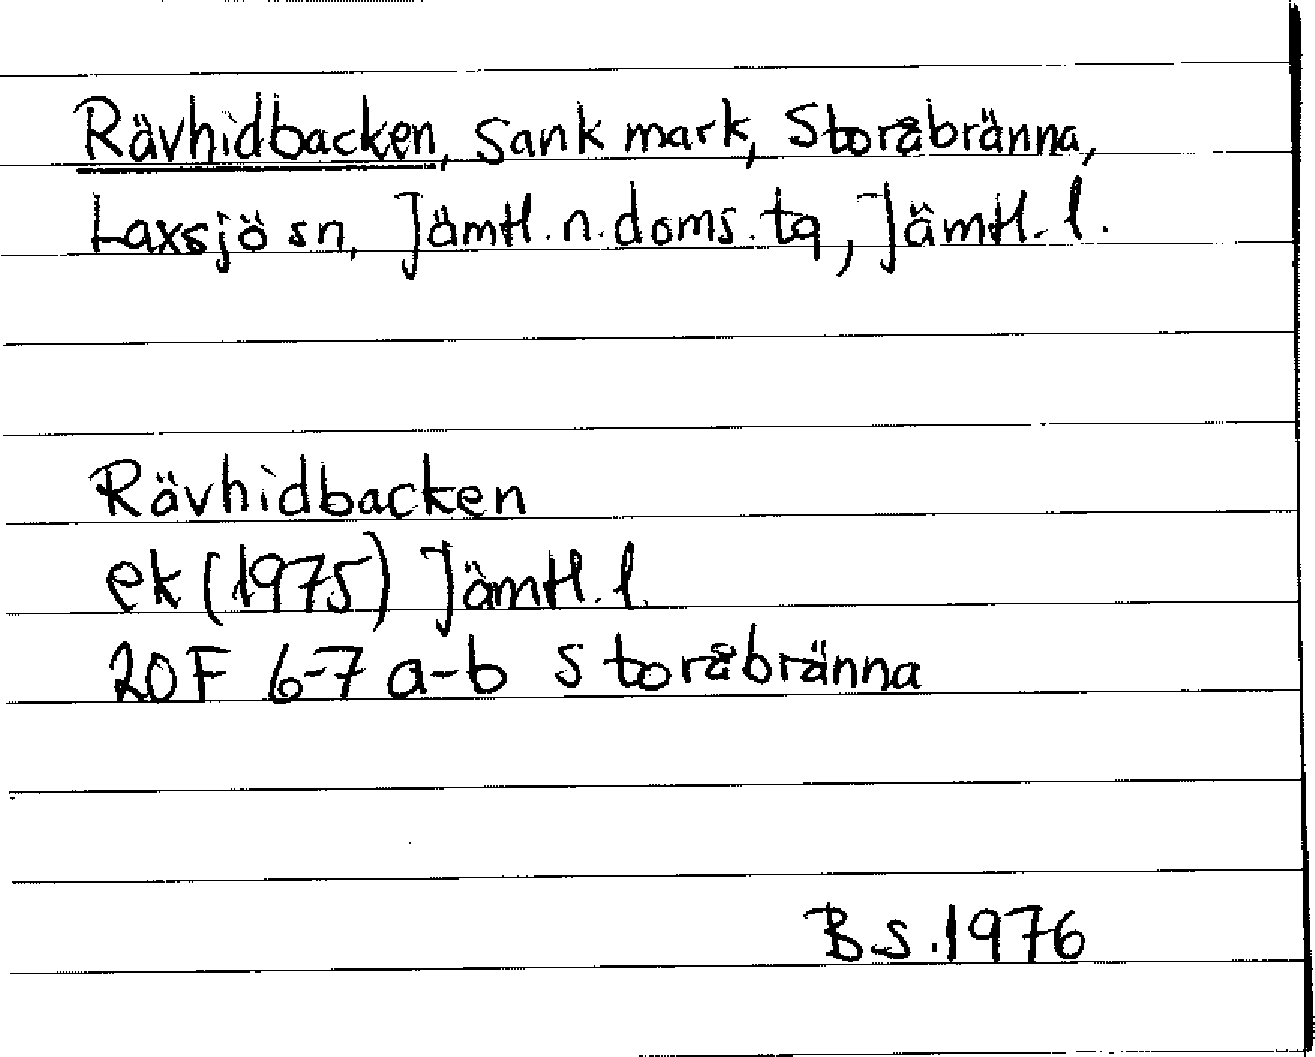 Rävhidbacken, sank mark, Storåbränna,
Laxsjö sn, Jämtl. n. doms. tg, Jämtl. l.
Rävhidbacken
ek (1975) Jämtl. l.
20F 6-7 a-b Storåbränna
B S. 1976